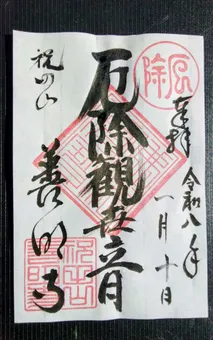 厄除
奉拝
令和八年
一月十日
厄除観世音
祝田山
善明寺